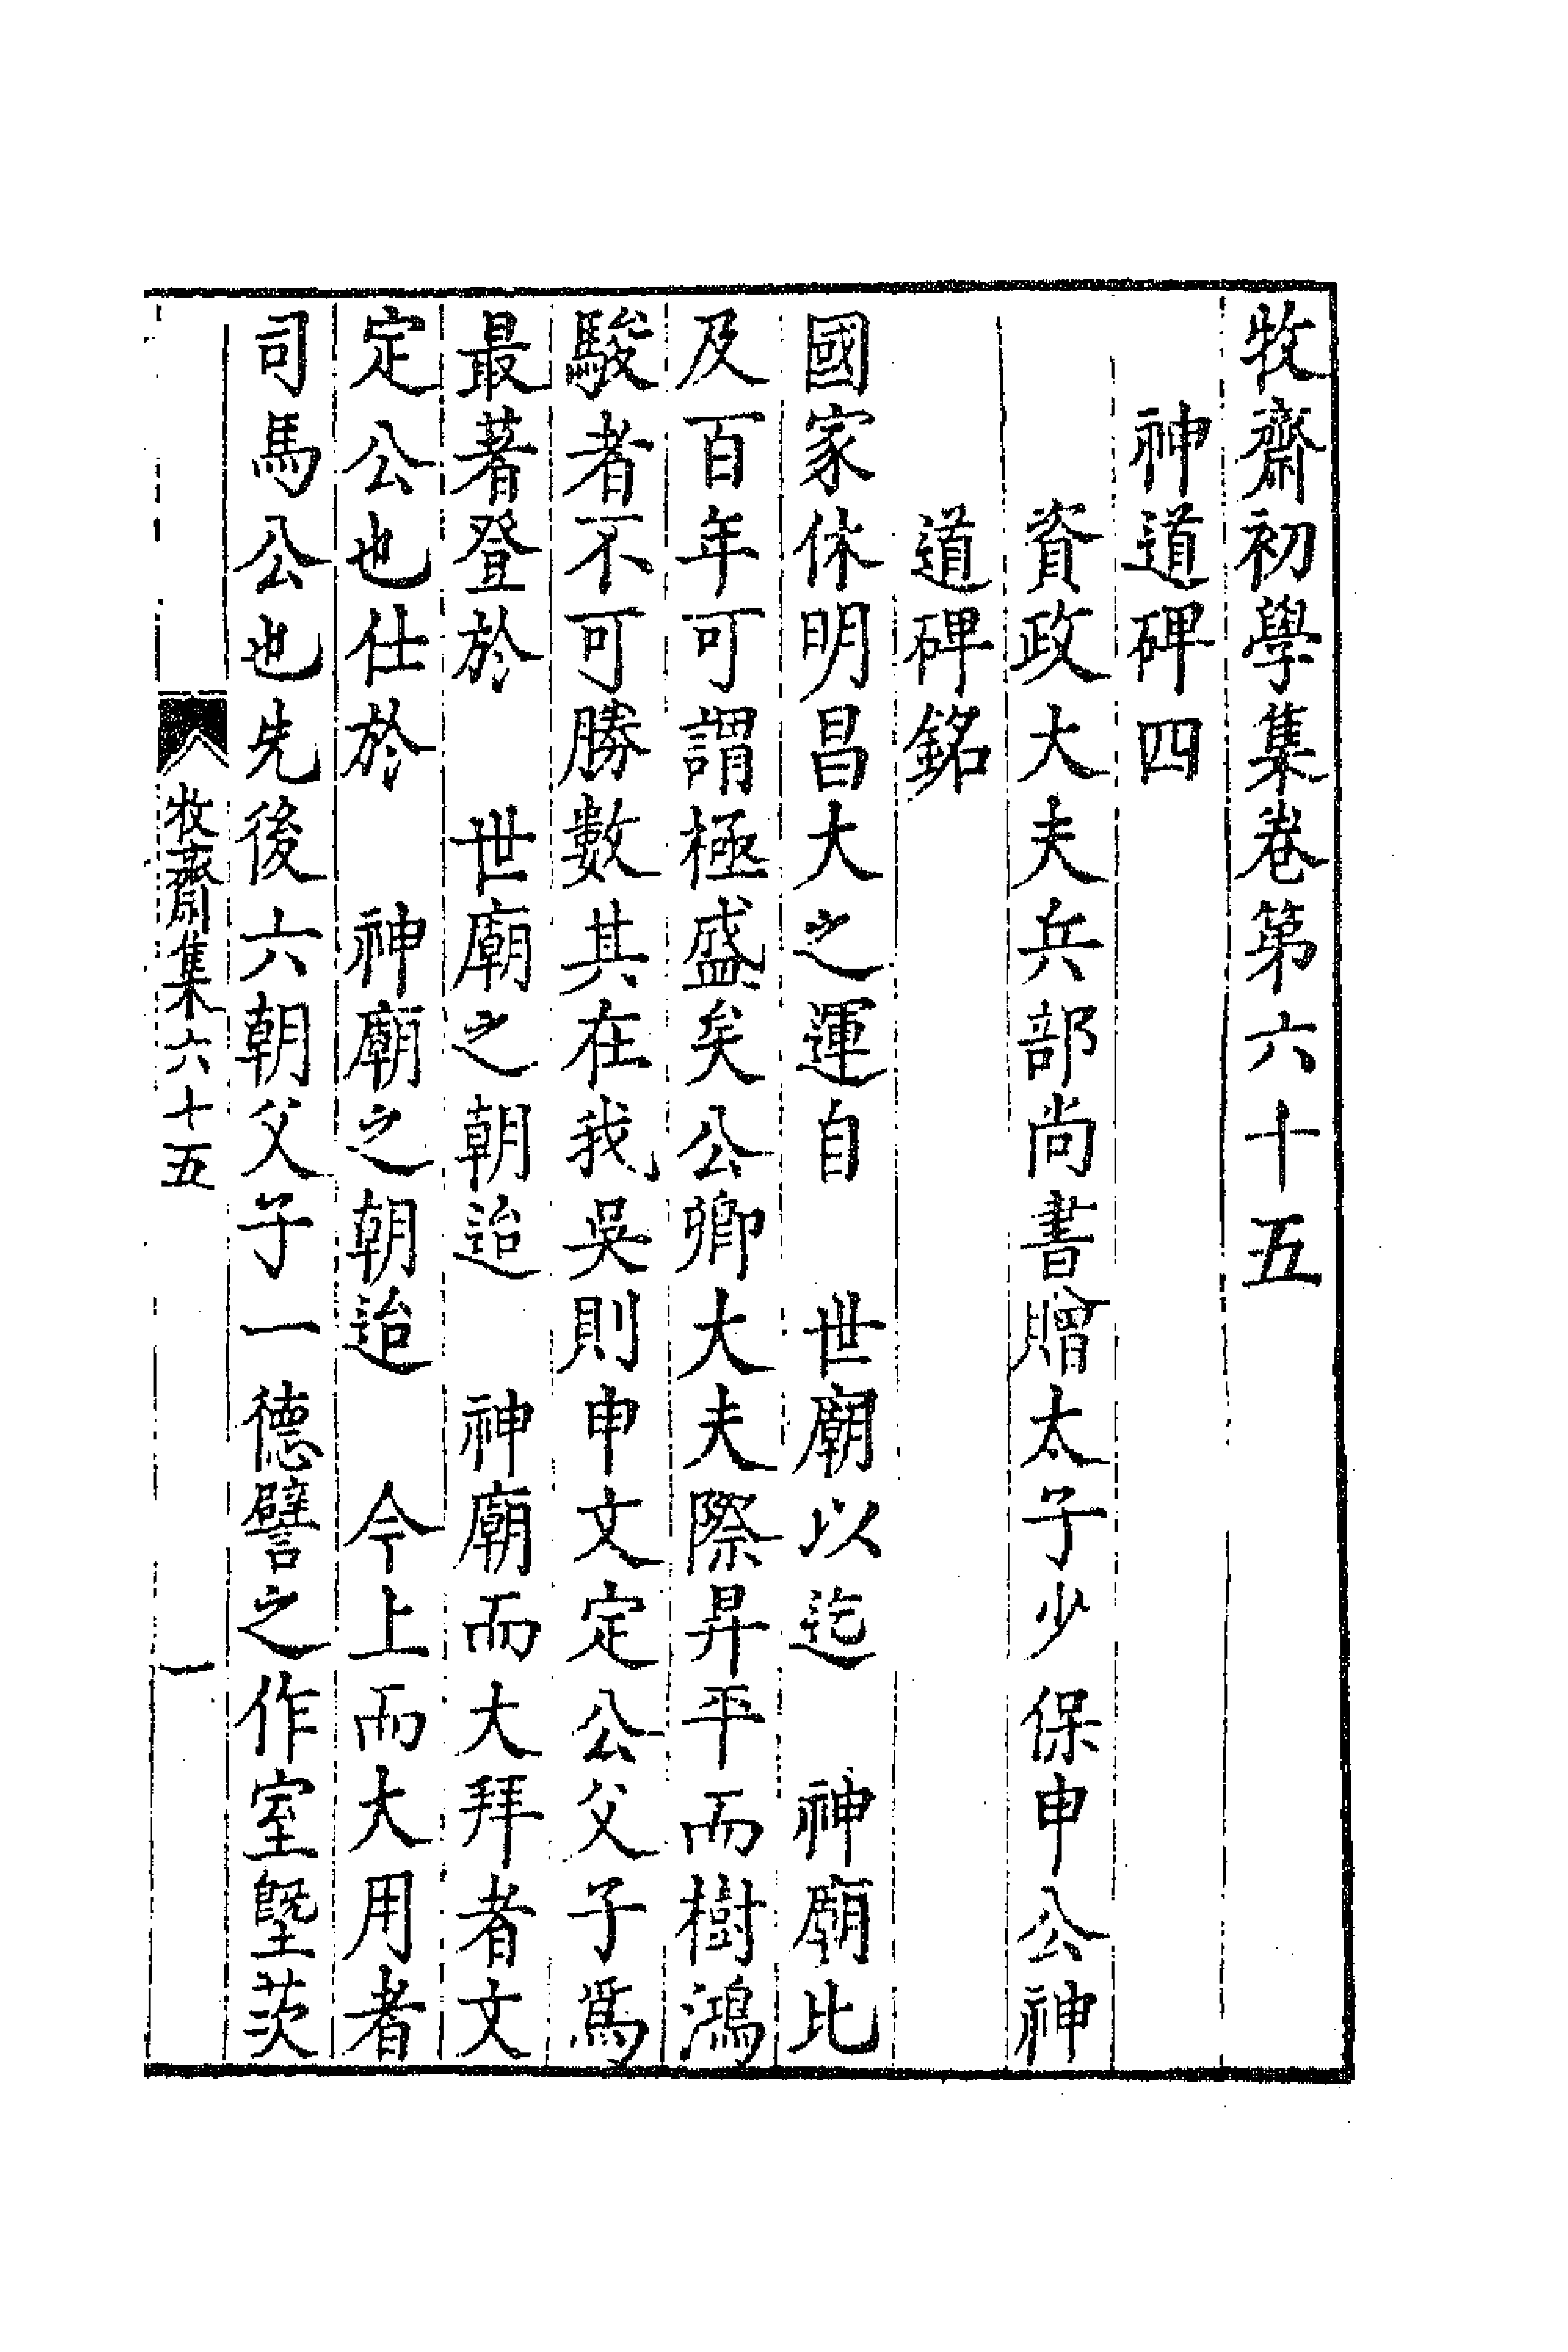 牧齋初學集卷第六十五
神道碑四
資政大夫兵部尚書贈太子少保申公神
道碑銘
國家休明昌大之運自　世廟以迄　神廟比
及百年可謂極盛矣公卿大夫際昇平而樹鴻
駿者不可勝數其在我吳則申文定公父子爲
最著登於　世廟之朝迨　神廟而大拜者文
定公也仕於　神廟之朝迨　今上而大用者
司馬公也先後六朝父子一德譬之作室塈茨
牧齋集六十五　一